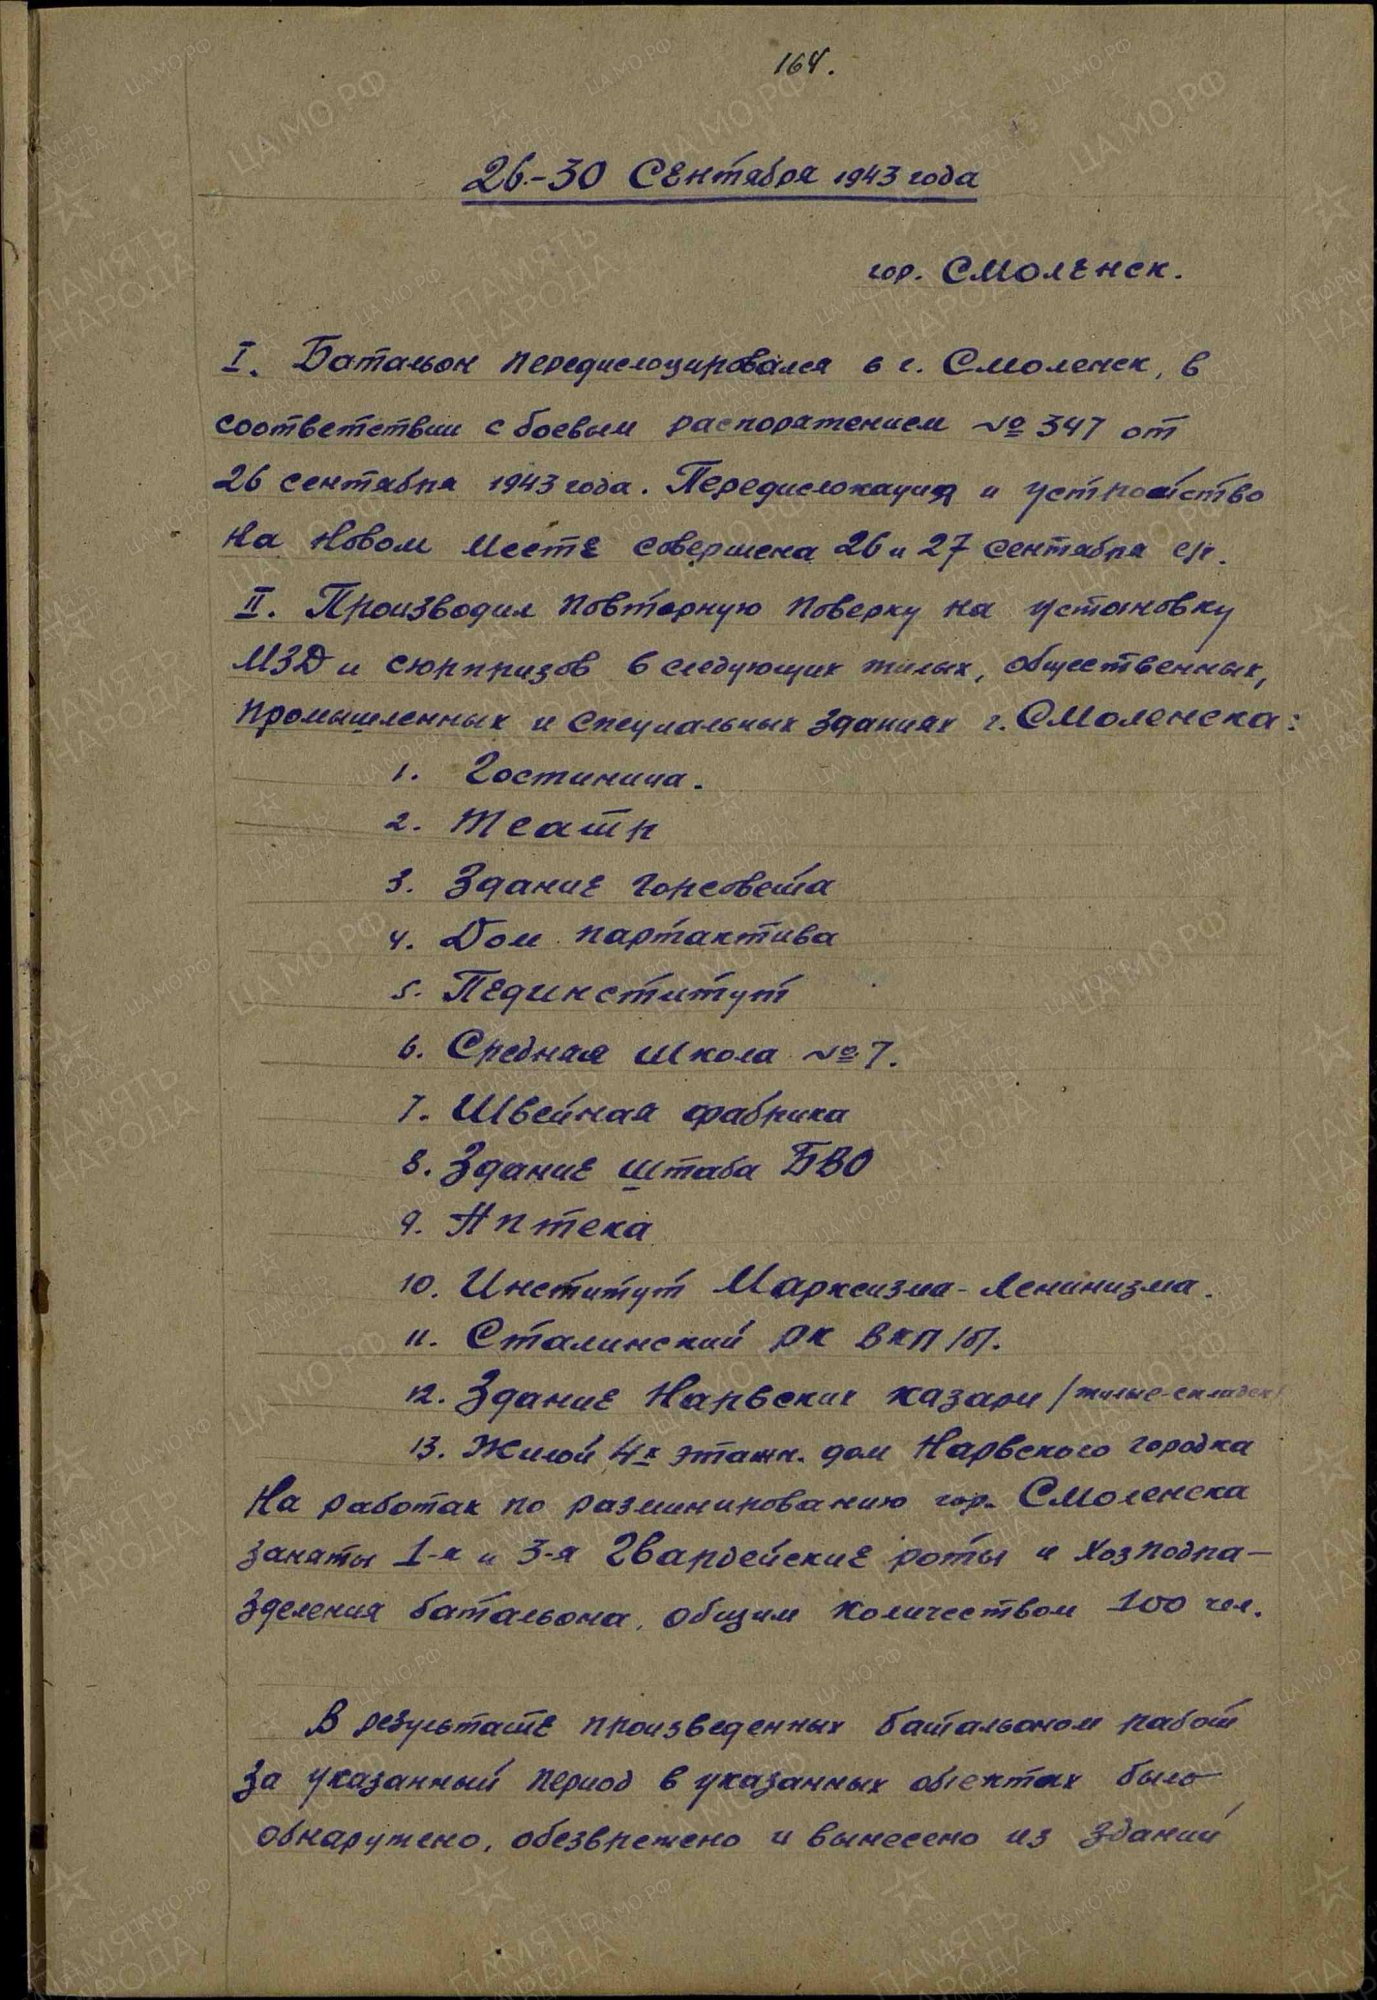 164.
26-30 Сентября 1943 года
гор. Смоленск.
I. Батальон передислоцировался в г. Смоленск, в
соответствии с боевым распоряжением № 347 от
26 сентября 1943 года. Передислокация и устройство
на новом месте совершена 26 и 27 сентября с/г.
II. Производил повторную поверку на установку
МЗД и сюрпризов в следующих жилых, общественных,
промышленных и специальных зданиях г. Смоленска:
1. Гостиница.
2. Театр
3. Здание горсовета
4. Дом партактива
5. Пединститут
6. Средняя школа № 7.
7. Швейная фабрика
8. Здание штаба БВО
9. Аптека
10. Институт Марксизма-Ленинизма.
11. Сталинский РК ВКП/б/.
12. Здание Нарвских казарм /жилые-складск/
13. Жилой 4х этажн. дом Нарвского городка
На работах по разминированию гор. Смоленска
заняты 1-я и 3-я Гвардейские роты и хозподра-
зделения батальона, общим количеством 100 чел.
В результате произведенных батальоном работ
за указанный период в указанных обектах было
обнаружено, обезврежено и вынесено из зданий
ПАМЯТЬ НАРОДА
ЦАМО.РФ